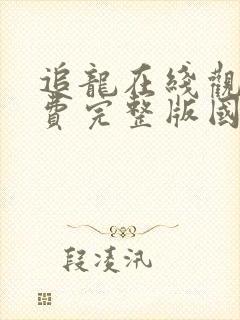 追龍在綫觀
費完整版國
段凌汛